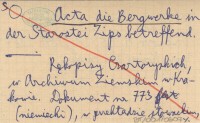 Acta die Bergwerke in
der Starostei Zips betreffend.
Rękopisy Czartoryskich,
w Archiwum Ziemskim w Kra-
kowie. Dokument nr 773
(niemiecki), w przekładzie